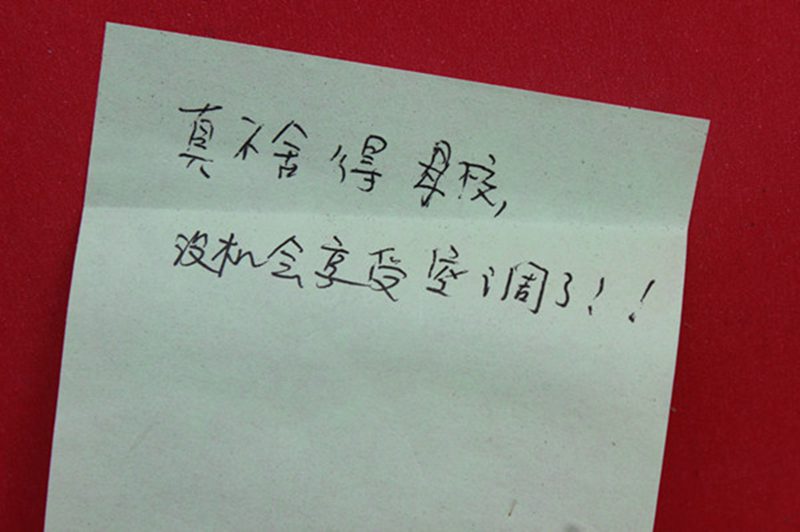 真不舍得母校,
没机会享受空调了!!